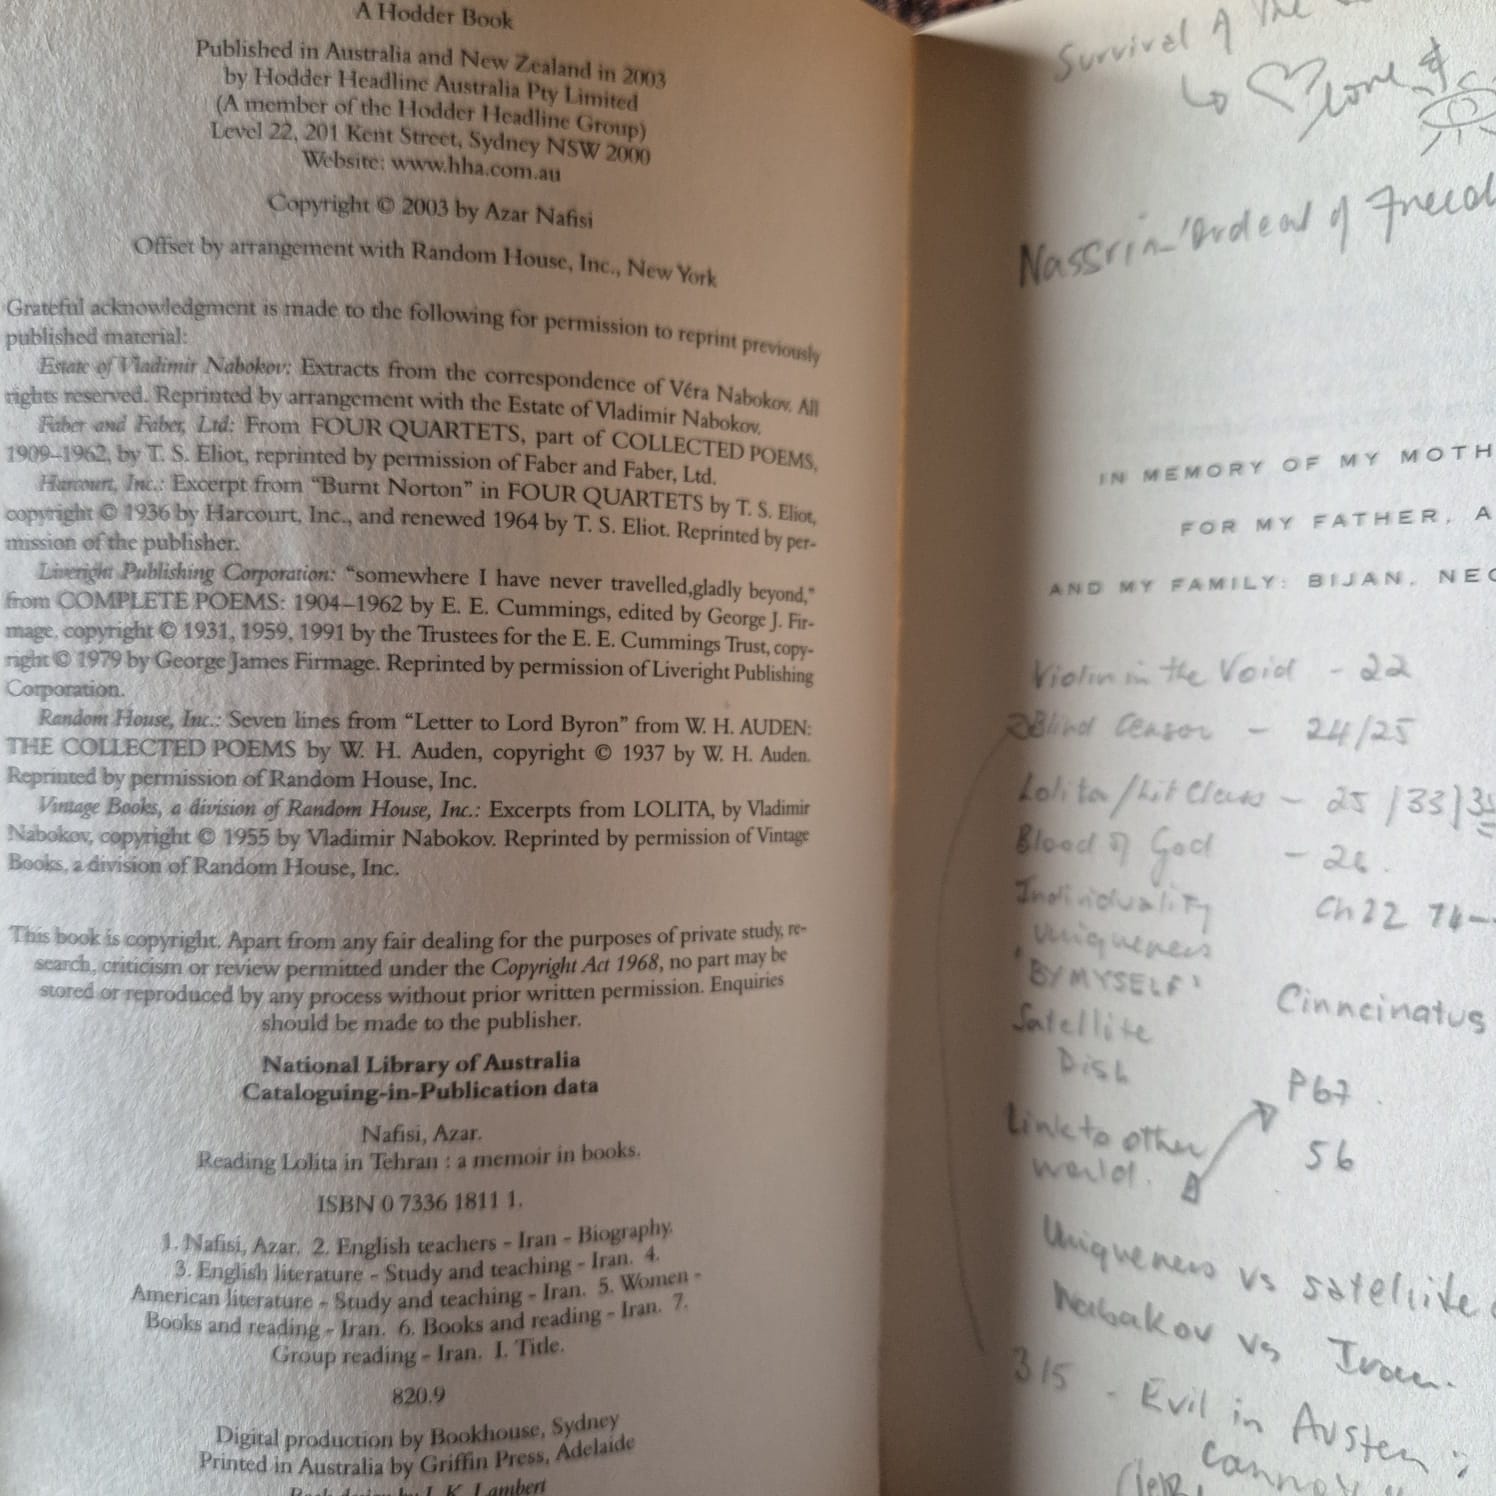 A Hodder Book
Published in Australia and New Zealand in 2003
by Hodder Headline Australia Pty Limited
(A member of the Hodder Headline Group)
Level 22, 201 Kent Street, Sydney NSW 2000
Website: www.hha.com.au
Copyright © 2003 by Azar Nafisi
Offset by arrangement with Random House, Inc., New York
Grateful acknowledgment is made to the following for permission to reprint previously
published material:
Estate of Vladimir Nabokov: Extracts from the correspondence of Véra Nabokov. All
rights reserved. Reprinted by arrangement with the Estate of Vladimir Nabokov.
Faber and Faber, Ltd: From FOUR QUARTETS, part of COLLECTED POEMS,
1909–1962, by T. S. Eliot, reprinted by permission of Faber and Faber, Ltd.
Harcourt, Inc.: Excerpt from “Burnt Norton” in FOUR QUARTETS by T. S. Eliot,
copyright © 1936 by Harcourt, Inc., and renewed 1964 by T. S. Eliot. Reprinted by per-
mission of the publisher.
Liveright Publishing Corporation: “somewhere I have never travelled,gladly beyond,”
from COMPLETE POEMS: 1904–1962 by E. E. Cummings, edited by George J. Fir-
mage, copyright © 1931, 1959, 1991 by the Trustees for the E. E. Cummings Trust, copy-
right © 1979 by George James Firmage. Reprinted by permission of Liveright Publishing
Corporation.
Random House, Inc.: Seven lines from “Letter to Lord Byron” from W. H. AUDEN:
THE COLLECTED POEMS by W. H. Auden, copyright © 1937 by W. H. Auden.
Reprinted by permission of Random House, Inc.
Vintage Books, a division of Random House, Inc.: Excerpts from LOLITA, by Vladimir
Nabokov, copyright © 1955 by Vladimir Nabokov. Reprinted by permission of Vintage
Books, a division of Random House, Inc.
This book is copyright. Apart from any fair dealing for the purposes of private study, re-
search, criticism or review permitted under the Copyright Act 1968, no part may be
stored or reproduced by any process without prior written permission. Enquiries
should be made to the publisher.
National Library of Australia
Cataloguing-in-Publication data
Nafisi, Azar.
Reading Lolita in Tehran : a memoir in books.
ISBN 0 7336 1811 1.
1. Nafisi, Azar. 2. English teachers - Iran - Biography.
3. English literature - Study and teaching - Iran. 4.
American literature - Study and teaching - Iran. 5. Women -
Books and reading - Iran. 6. Books and reading - Iran. 7.
Group reading - Iran. I. Title.
820.9
Digital production by Bookhouse, Sydney
Printed in Australia by Griffin Press, Adelaide
Book design by J. K. Lambert
Survival of the
love &
Nassrin 'Ordeal of Freed
IN MEMORY OF MY MOTH
FOR MY FATHER, A
AND MY FAMILY: BIJAN, NEG
Violin in the Void - 22
Blind Censor - 24/25
Lolita/Lit Class - 25/33/3
Blood of God - 26.
Individuality Ch 22 74-
Uniqueness
'BY MYSELF'
Cinncinatus
Satellite
Dish
P67.
Link to other
world.
56
Uniqueness vs satellite
Nabakov vs Iran.
315 - Evil in Austen:
cannot